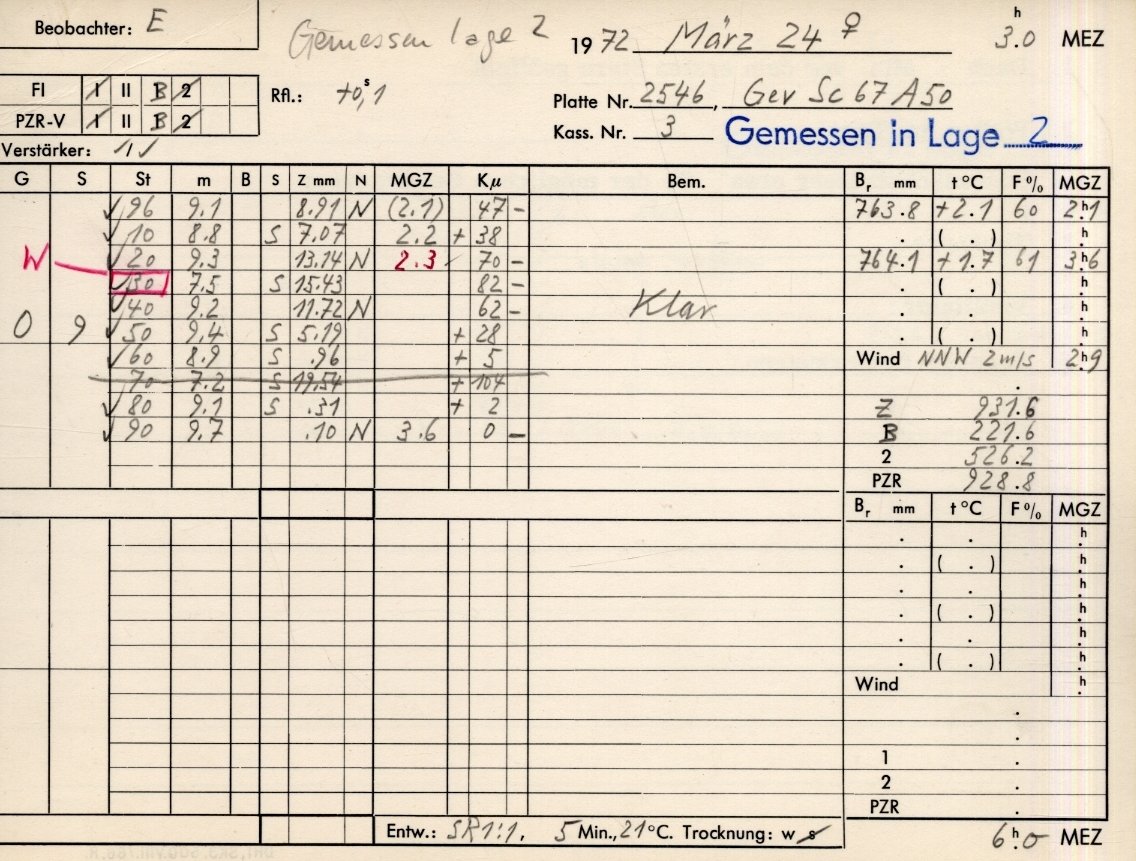 Beobachter: E
Gemessen Lage 2
1972 März 24 ♀
3.0 h MEZ
FI I II B 2
PZR-V I II B 2
Rfl.: +0,s1
Verstärker: 1 ✓
Platte Nr. 2546, Gev Sc 67 A 50
Kass. Nr. 3 Gemessen in Lage 2
G S St m B S Z mm N MGZ Kμ Bem. Br mm t °C F % MGZ
✓ 96 9.1 8.91 N (2.1) 47 – 763.8 +2.1 60 2h.1
✓ 10 8.8 S 7.07 2.2 + 38 . ( . ) h.
W ✓ 20 9.3 13.14 N 2.3 70 – 764.1 +1.7 61 3h.6
✓ 30 7.5 S 15.43 82 – . ( . ) h.
✓ 40 9.2 11.72 N 62 – Klar . . h.
0 9 ✓ 50 9.4 S 5.19 + 28 . ( . ) h.
✓ 60 8.9 S .96 + 5 Wind NNW 2 m/s 2h.9
70 7.2 S 19.54 + 104 .
✓ 80 9.1 S .31 + 2 Z 931.6
✓ 90 9.7 .10 N 3.6 0 – B 221.6
2 526.2
PZR 928.8
Br mm t °C F % MGZ
. . h.
. ( . ) h.
. . h.
. ( . ) h.
. . h.
. ( . ) h.
Wind h.
.
.
1 .
2 .
PZR .
Entw.: SR 1:1, 5 Min., 21 °C. Trocknung: w s
6h.0 MEZ